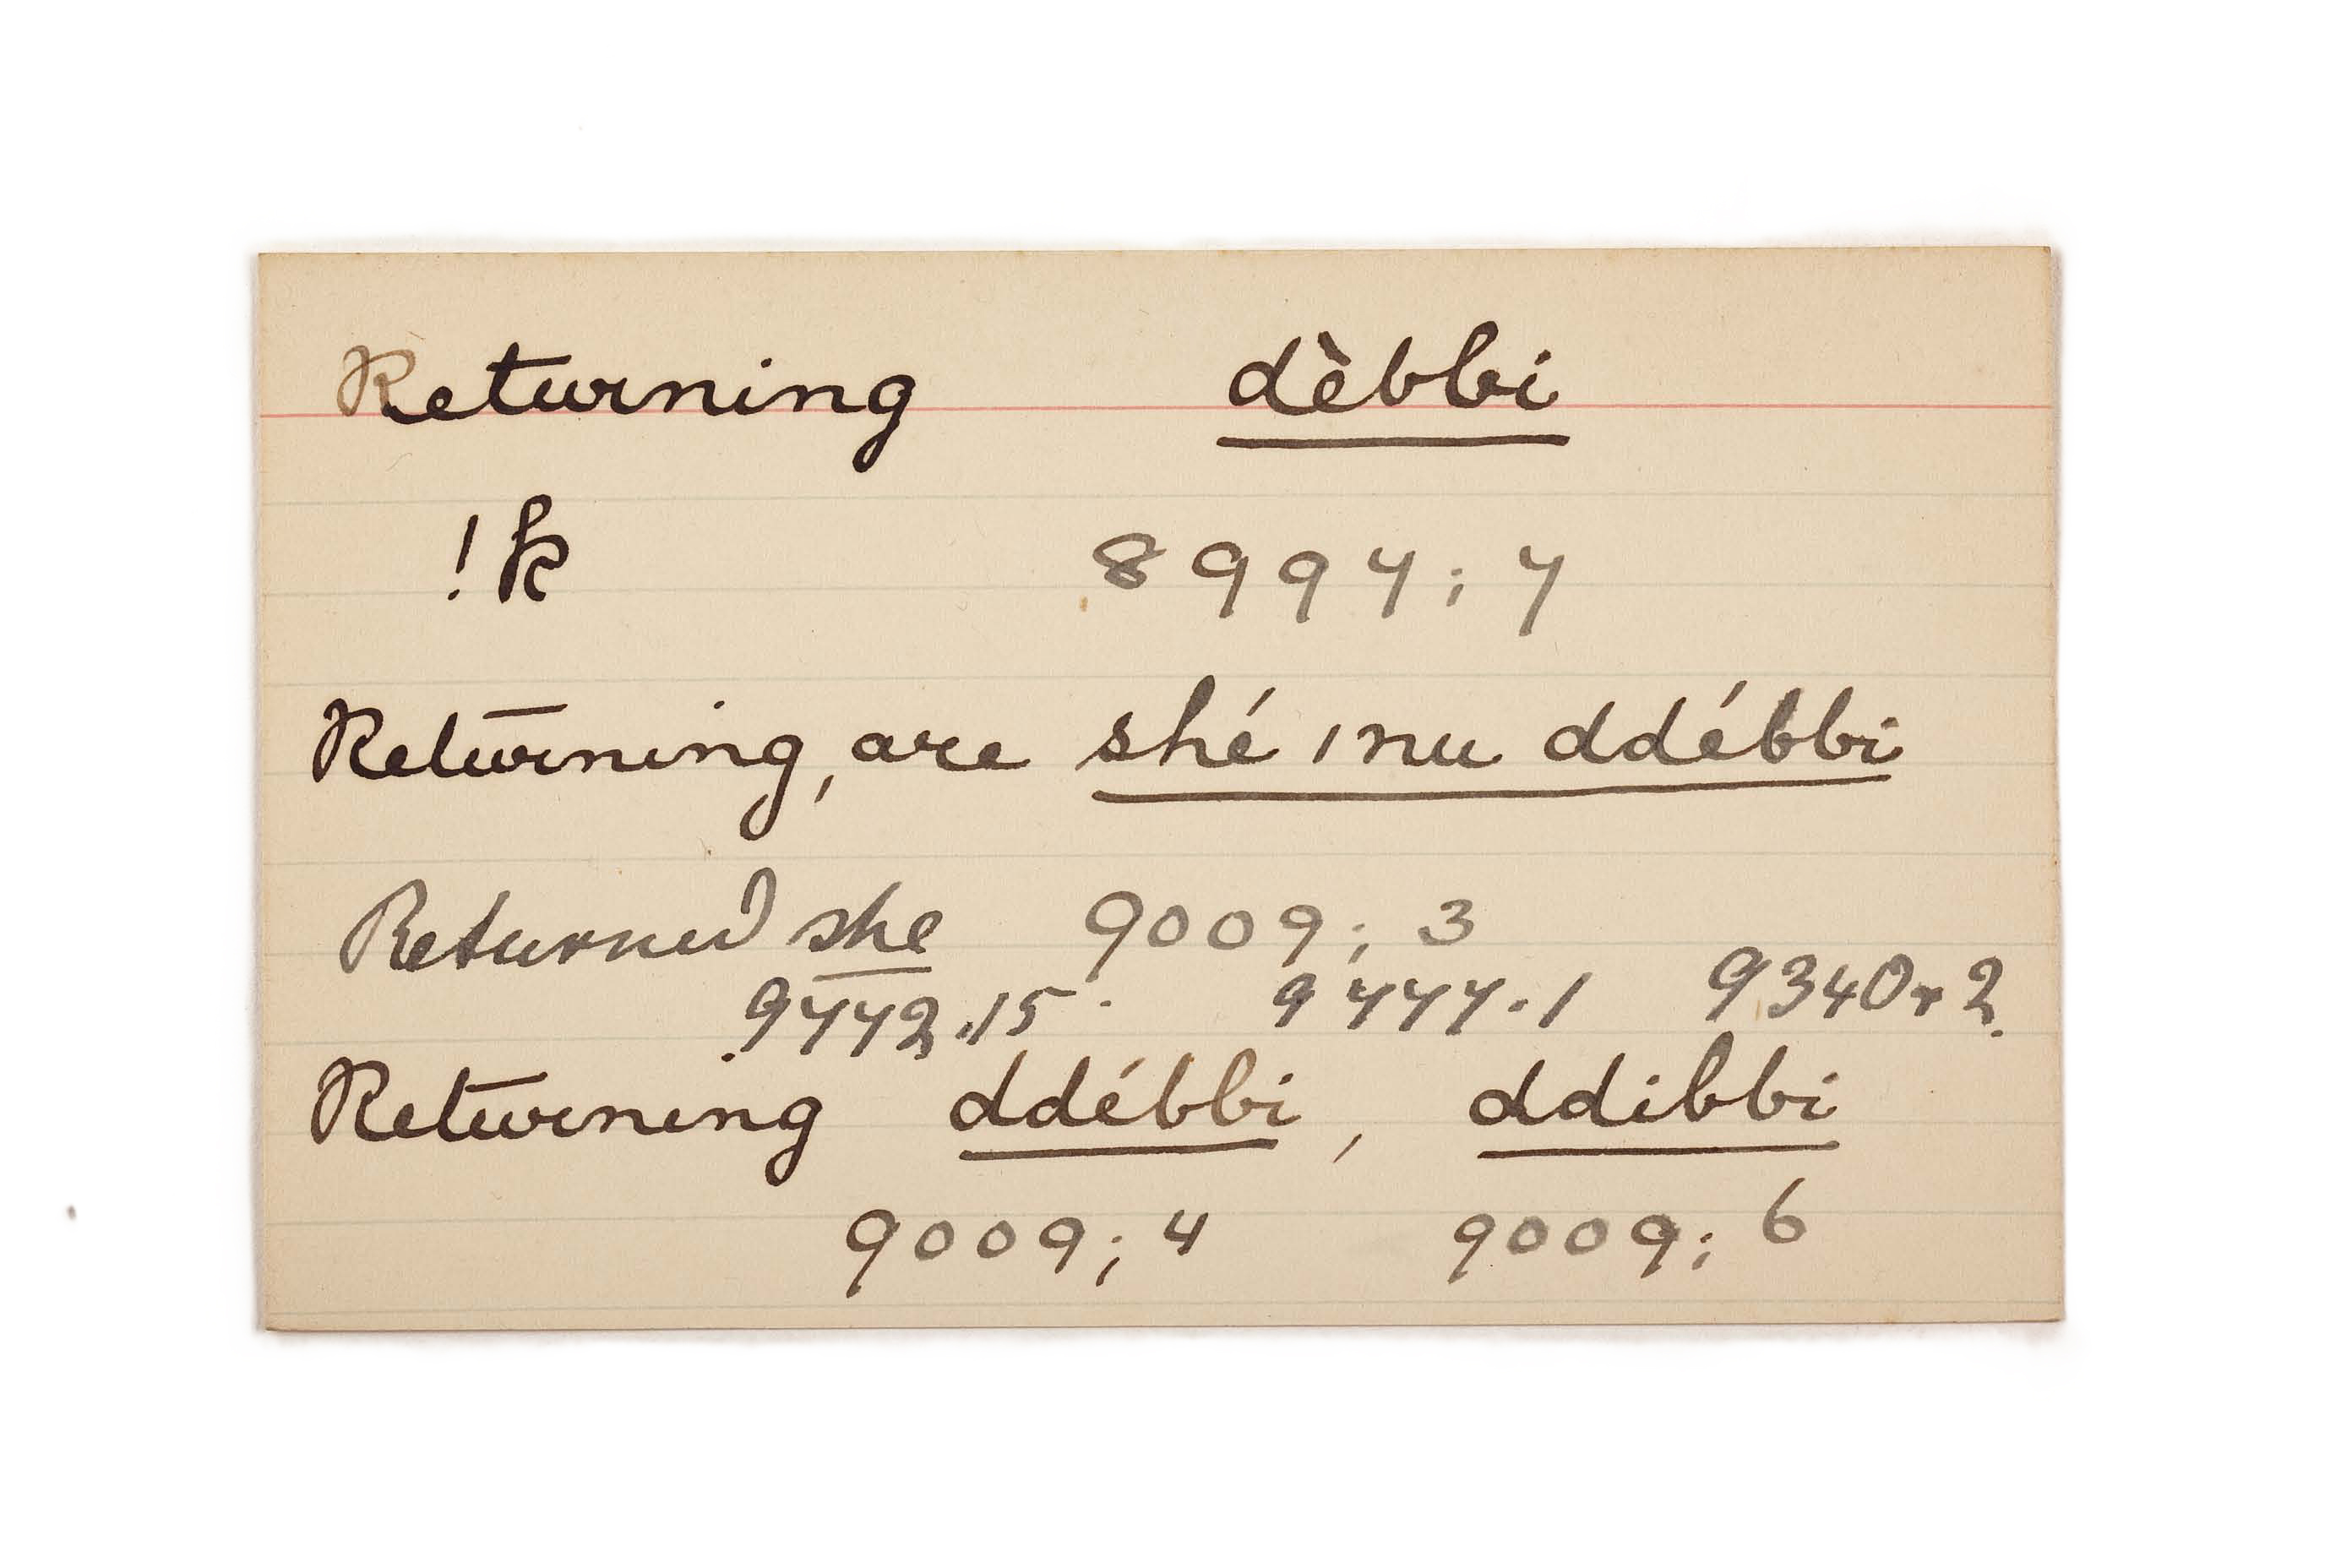 Returning dèbbi
!k 8997; 7
Returning, are shé ı nu ddébbi
Returned she 9009; 3
9772.15 9777.1 9340+2.
Returning ddébbi, ddibbi
9009; 4 9009; 6